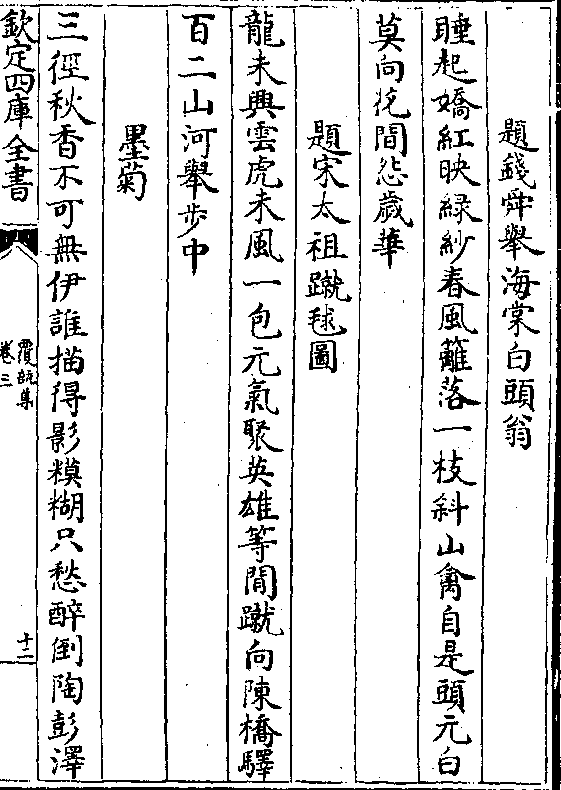 題錢舜舉海棠白頭翁
睡起嬌紅映緑紗春風籬落一枝斜山禽自是頭元白
莫向花間怨歲華
題宋太祖蹴毬圖
龍未興雲虎未風一包元氣聚英雄等閒蹴向陳橋驛
百二山河舉步中
墨菊
三徑秋香不可無伊誰描得影糢糊只愁醉倒陶彭澤
欽定四庫全書
覆瓿集
卷三
十二